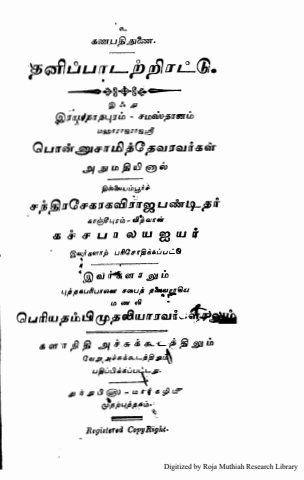 உ
கணபதி துணை.
தனிப்பாடற்றிரட்டு.
இஃது
இராமநாதபுரம் - சமஸ்தானம்
மஹாராஜராஜஸ்ரீ
பொன்னுசாமித்தேவரவர்கள்
அநுமதியினால்
தில்லையம்பூர்ச்
சந்திரசேகரகவிராஜபண்டிதர்
காஞ்சீபுரம் - வித்வான்
கச்சபாலயஐயர்
இவர்களாற் பரிசோதிக்கப்பட்டு
இவர்களாலும்
புத்தகபரிபாலன சபைத்
மணலி
பெரியதம்பிமுதலியாரவர்
களாநிதி அச்சுக்கூடத்திலும்
அச்சுக்கூடத்திலும்
பதிப்பிக்கப்பட்டது.
மார்கழி
முதற்புத்தகம்.
Registered CopyRight.
Digitized by Roja Muthiah Research Library